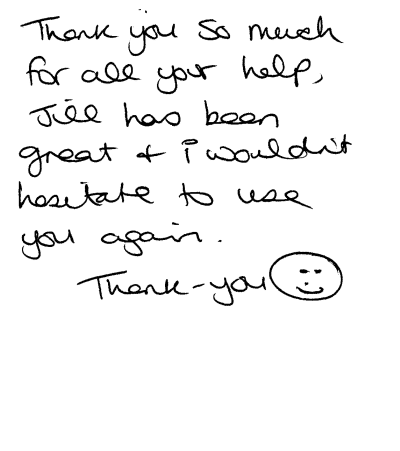 Thank you so much
for all your help,
Jill has been
great + i wouldn't
hesitate to use
you again.
Thank-you